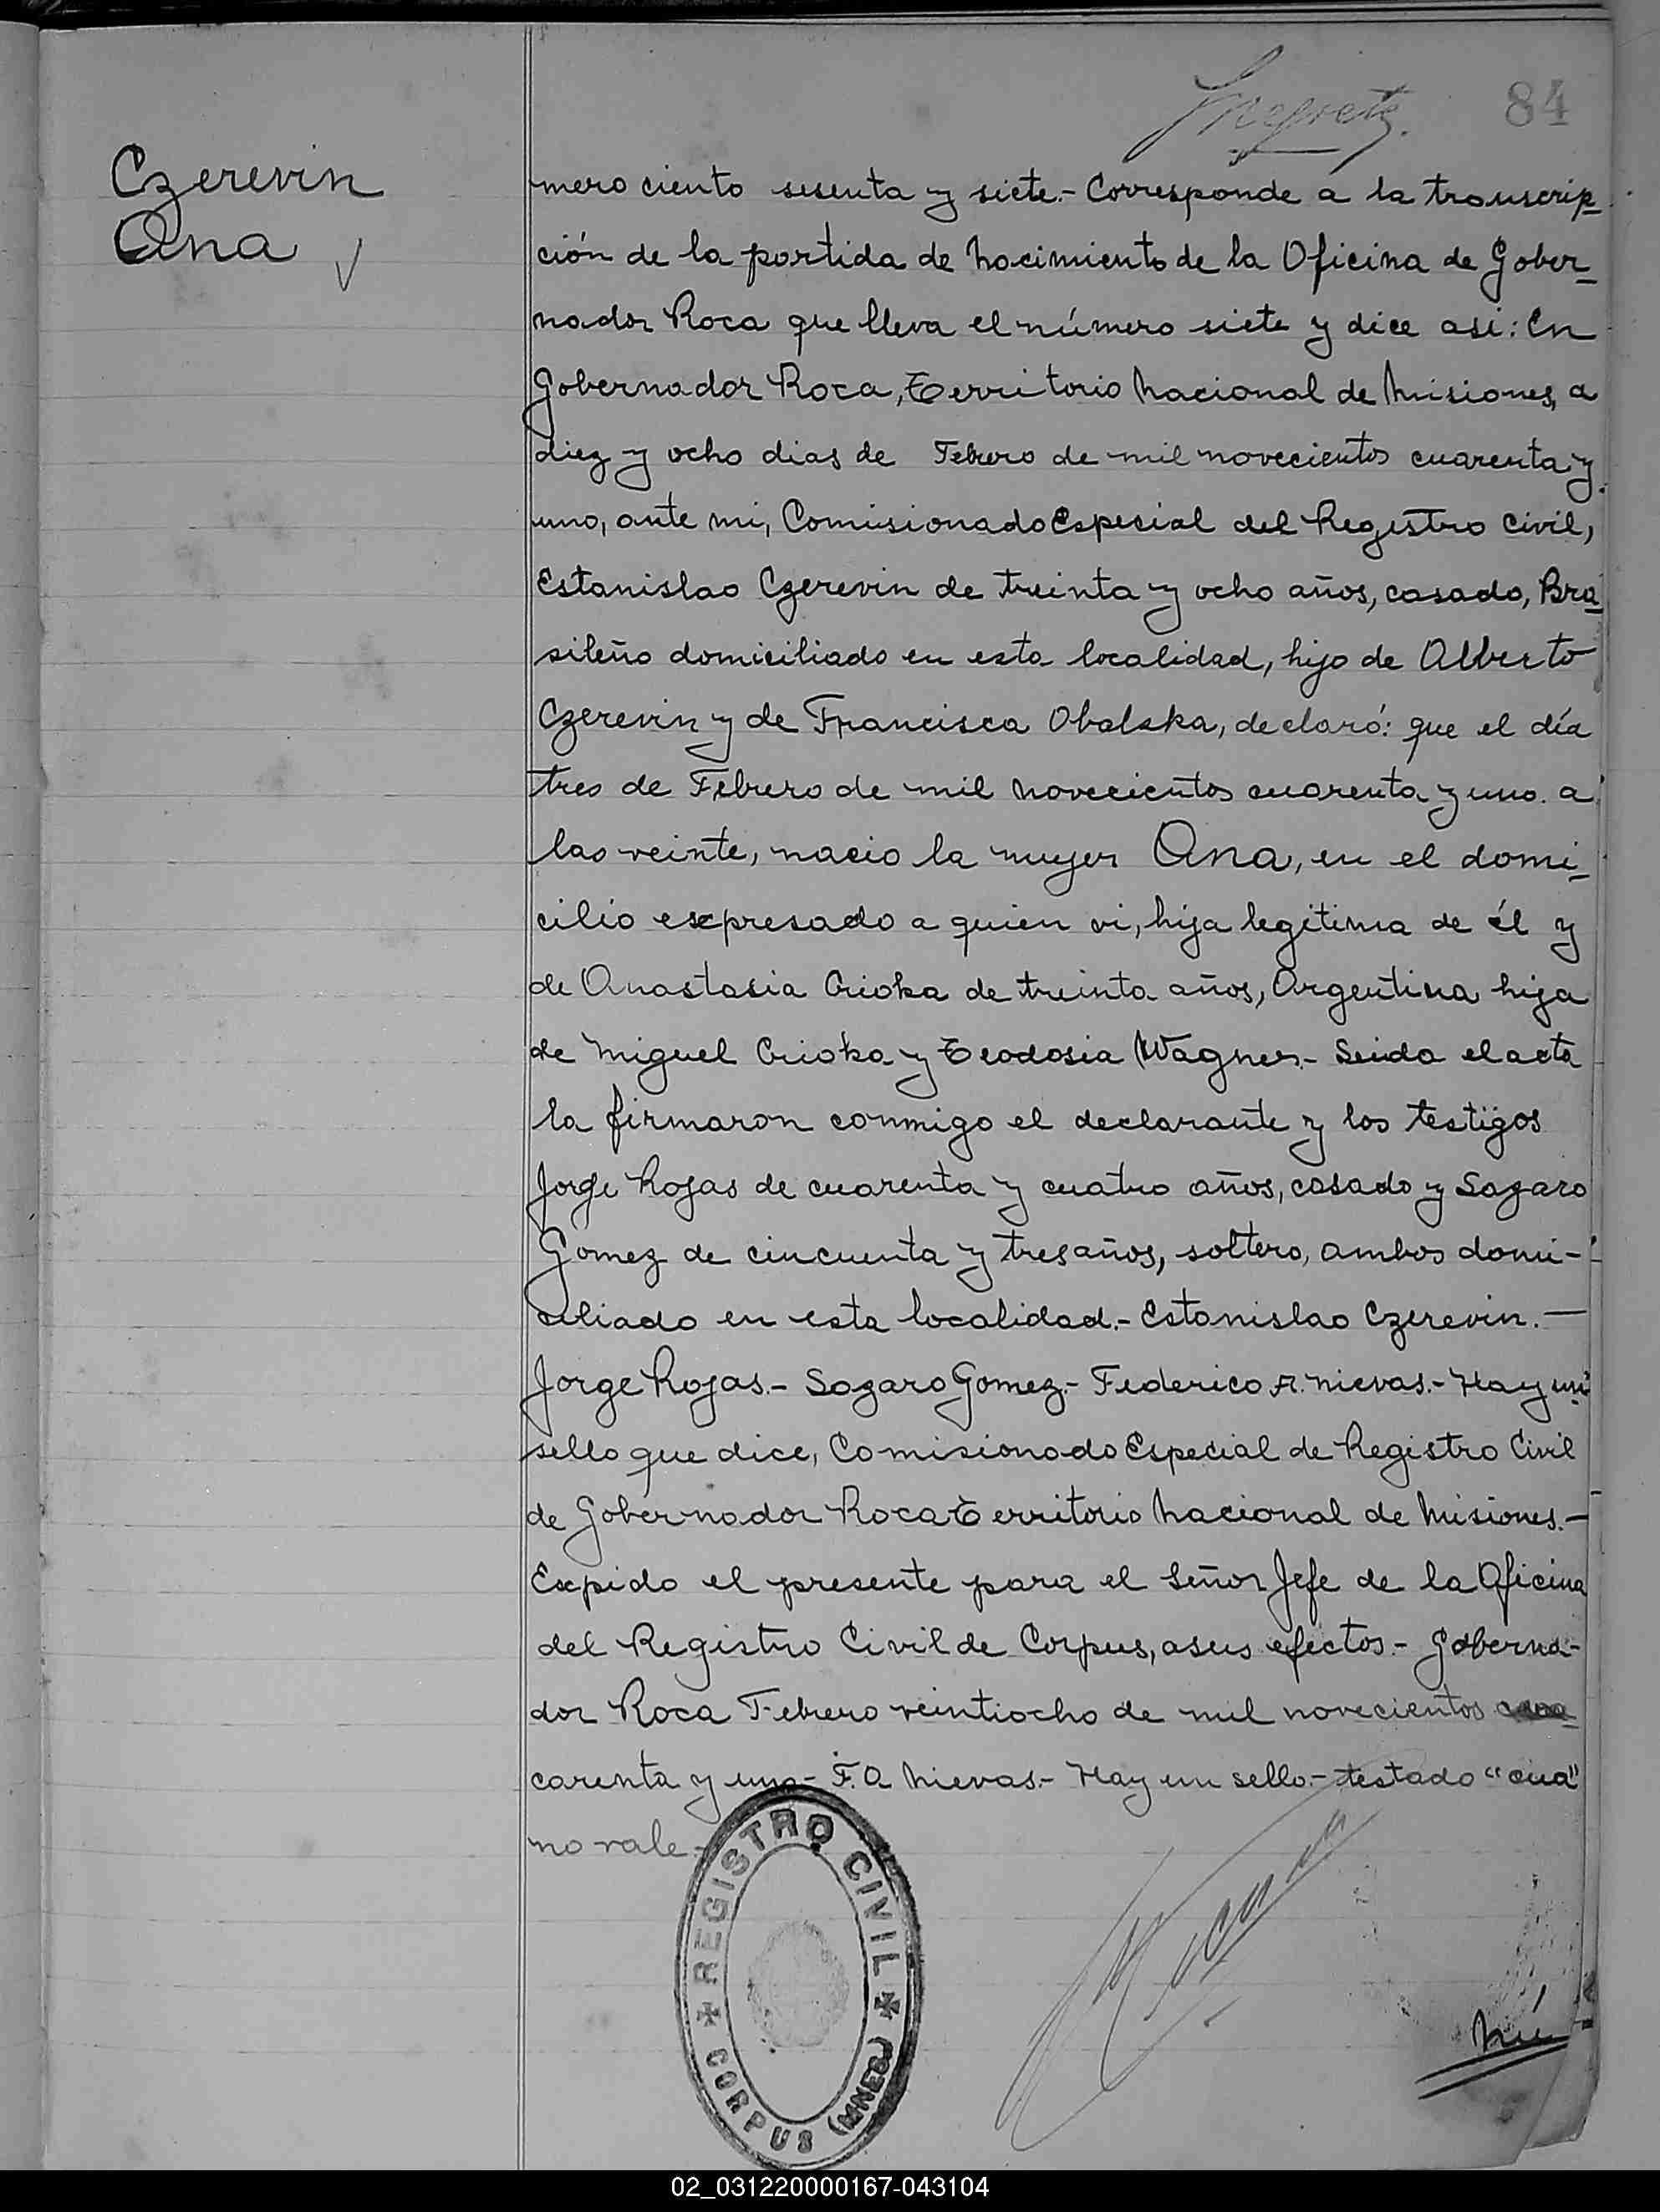 84
Czerevin
Ana
mero ciento sesenta y siete.- Corresponde a la transcrip-
ción de la partida de Nacimiento de la Oficina de Gober-
nador Roca que lleva el número siete y dice asi: En
Gobernador Roca, Territorio Nacional de Misiones, a
diez y ocho dias de Febrero de mil novecientos cuarenta y
uno, ante mi, Comisionado Especial del Registro Civil,
Estanislao Czerevin de treinta y ocho años, casado, Bra-
sileño domiciliado en esta localidad, hijo de Alberto
Czerevin y de Francisca Obalska, declaró: que el día
tres de Febrero de mil novecientos cuarenta y uno. a
las veinte, nacio la mujer Ana, en el domi-
cilio expresado a quien vi, hija legitima de él y
de Anastasia Crioka de treinta años, Argentina hija
de Miguel Crioka y Teodosia Wagner.- Leida el acta
la firmaron conmigo el declarante y los testigos
Jorge Rojas de cuarenta y cuatro años, casado y Lazaro
Gomez de cincuenta y tres años, soltero, ambos domi-
ciliado en esta localidad.- Estanislao Czerevin.-
Jorge Rojas.- Lazaro Gomez.- Federico A. Nievas.- Hay un
sello que dice, Comisionado Especial de Registro Civil
de Gobernador Roca Territorio Nacional de Misiones.-
Expido el presente para el Señor Jefe de la Oficina
del Registro Civil de Corpus, a sus efectos.- Goberna-
dor Roca Febrero veintiocho de mil novecientos
carenta y uno- F. A Nievas.- Hay un sello.- testado "cua"
no vale.-
REGISTRO CIVIL
CORPUS (MNES)
Nú
02_031220000167-043104